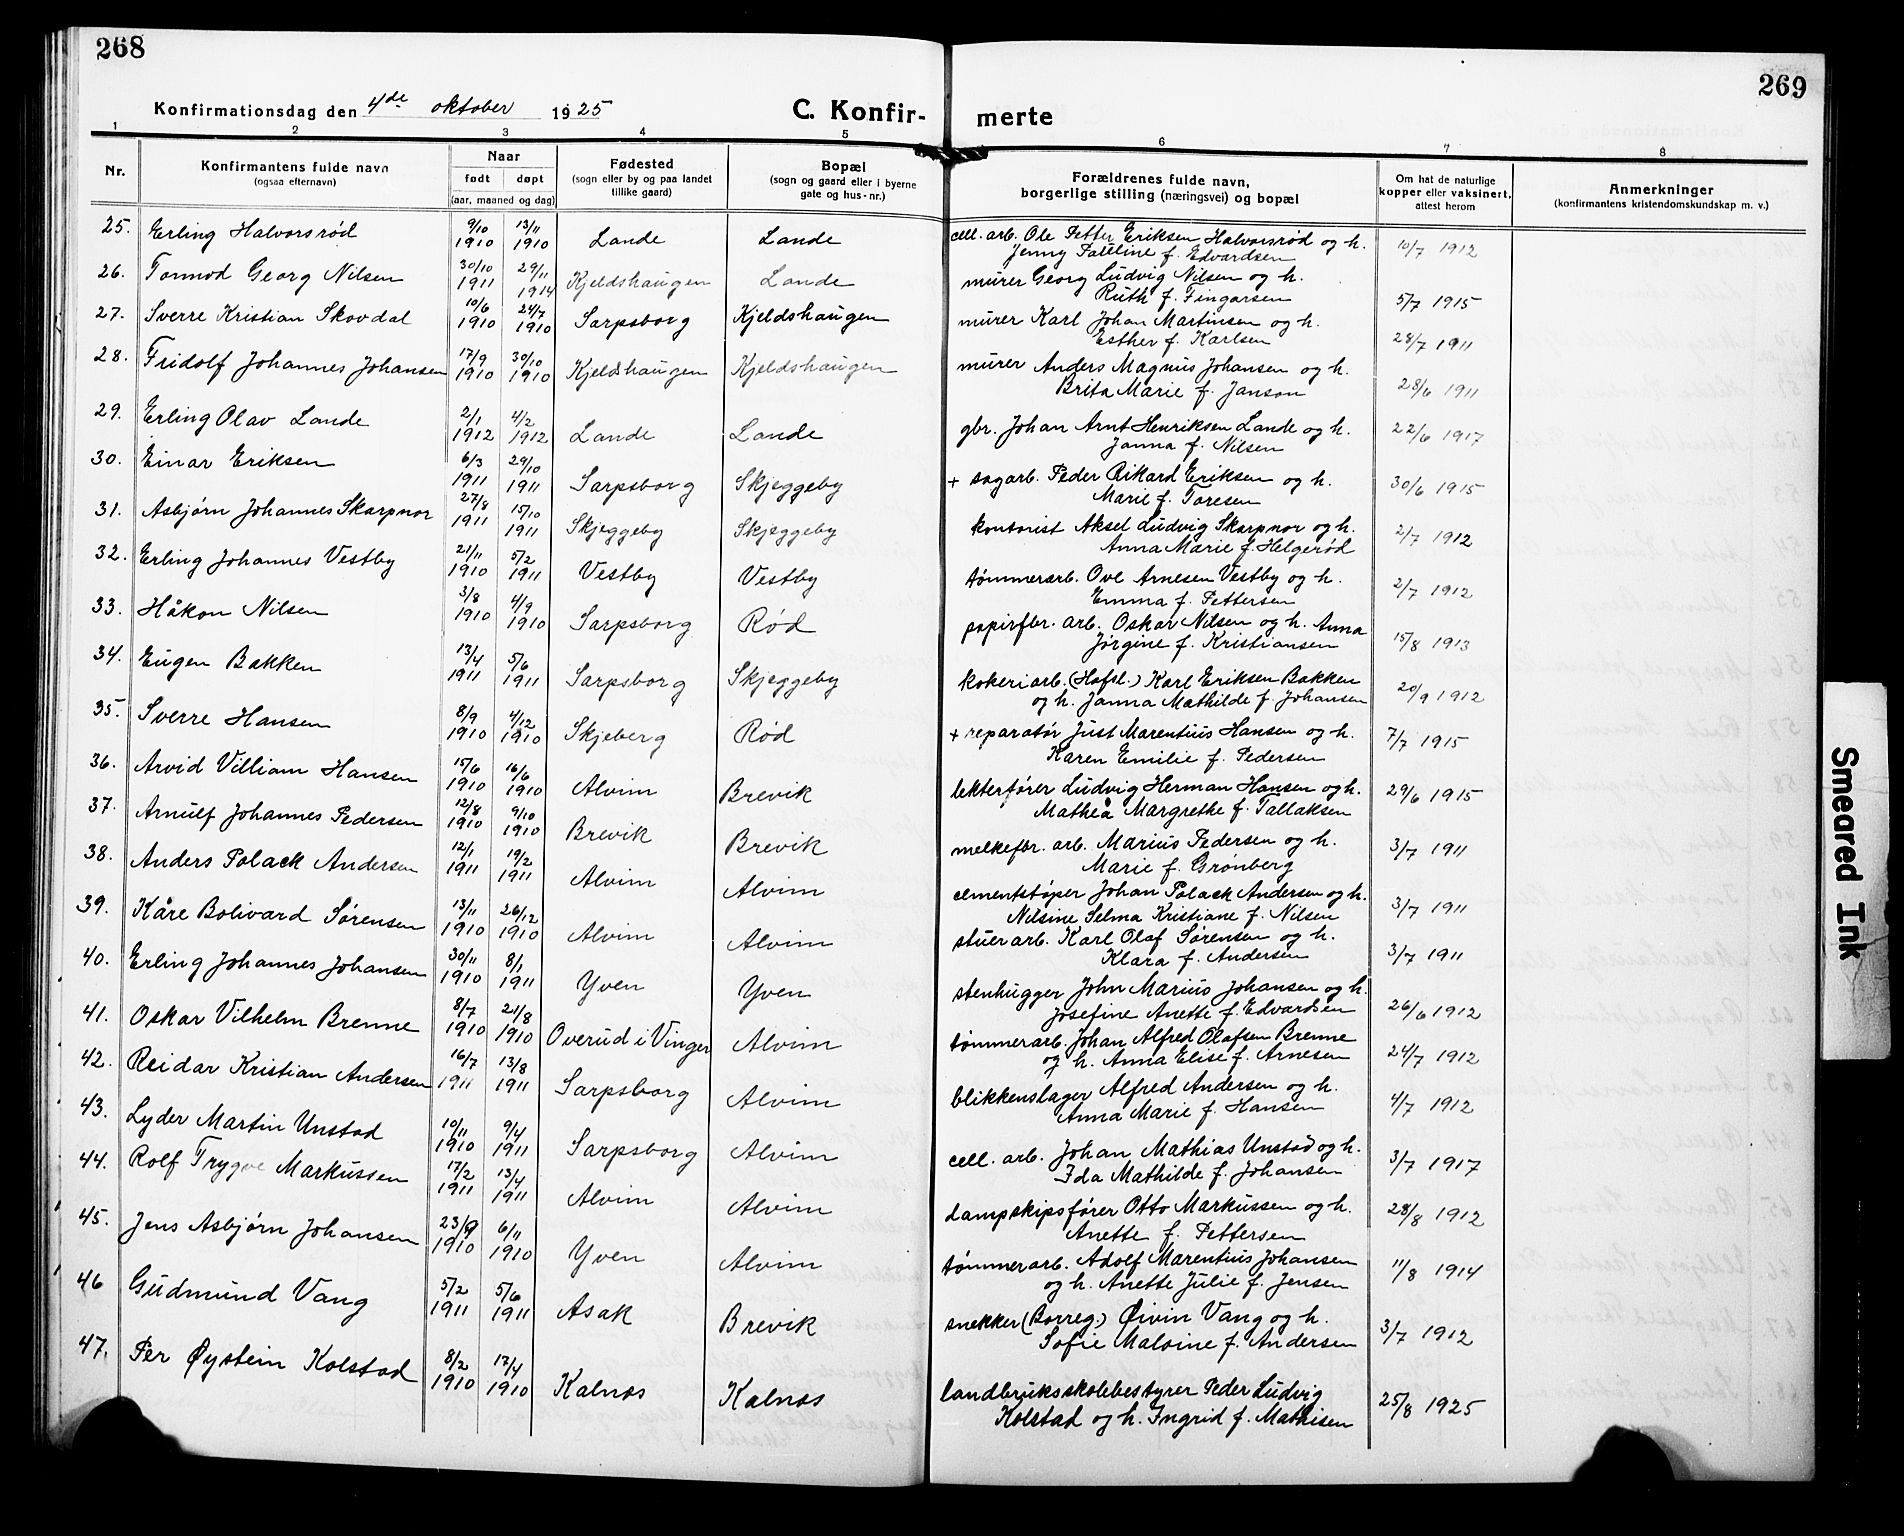 268
269
Konfirmationsdag den 4de oktober 1925
C. Konfir- merte
1 2 3 4 5 6 7 8
Nr.
Konfirmantens fulde navn
(ogsaa efternavn)
Naar
født døpt
(aar, maaned og dag)
Fødested
(sogn eller by og paa landet
tillike gaard)
Bopæl
(sogn og gaard eller i byerne
gate og hus-nr.)
Forældrenes fulde navn,
borgerlige stilling (næringsvei) og bopæl
Om hat de naturlige
kopper eller vaksinert,
attest herom
Anmerkninger
(konfirmantens kristendomskundskap m. v.)
25. Erling Halvorsrød 9/10 1910 13/11 1910 Lande Lande cell. arb. Ole Petter Eriksen Halvorsrød og h.
Jenny Pauline f. Edvardsen 10/7 1912
26. Tormod Georg Nilsen 30/10 1911 29/11 1914 Kjeldshaugen Lande murer Georg Ludvig Nilsen og h.
Ruth f. Fingarsen 5/7 1915
27. Sverre Kristian Skovdal 10/6 1910 24/7 1910 Sarpsborg Kjeldshaugen murer Karl Johan Martinsen og h.
Esther f. Karlsen 28/7 1911
28. Fridolf Johannes Johansen 17/9 1910 30/10 1910 Kjeldshaugen Kjeldshaugen murer Anders Magnus Johansen og h.
Brita Marie f. Janson 28/6 1911
29. Erling Olav Lande 2/1 1912 4/2 1912 Lande Lande gbr. Johan Arnt Henriksen Lande og h.
Janna f. Nilsen 22/6 1917
30. Einar Eriksen 6/3 1911 29/10 1911 Sarpsborg Skjeggeby + sagarb. Peder Rikard Eriksen og h.
Marie f. Toresen 30/6 1915
31. Asbjørn Johannes Skarpnor 27/8 1911 15/10 1911 Skjeggeby Skjeggeby kontorist Aksel Ludvig Skarpnor og h.
Anna Marie f. Helgerød 2/7 1912
32. Erling Johannes Vestby 21/11 1910 5/2 1911 Vestby Vestby tømmerarb. Ove Arnesen Vestby og h.
Emma f. Pettersen 2/7 1912
33. Håkon Nilsen 3/8 1910 4/9 1910 Sarpsborg Rød papirfbr. arb. Oskar Nilsen og h. Anna
Jørgine f. Kristiansen 15/8 1913
34. Eugen Bakken 13/4 1911 5/6 1911 Sarpsborg Skjeggeby kokeriarb. (Hafsl.) Karl Eriksen Bakken
og h. Janna Mathilde f. Johansen 20/9 1912
35. Sverre Hansen 8/9 1910 4/12 1910 Skjeberg Rød + reparatør Just Marentius Hansen og h.
Karen Emilie f. Pedersen 7/7 1915
36. Arvid Villiam Hansen 15/6 1910 16/6 1910 Alvim Brevik lekterfører Ludvig Herman Hansen og h.
Mathea Margrethe f. Tallaksen 29/6 1915
37. Arnulf Johannes Pedersen 12/8 1910 9/10 1910 Brevik Brevik melkefbr. arb. Marius Pedersen og h.
Marie f. Grønberg 3/7 1911
38. Anders Polack Andersen 12/1 1911 19/2 1911 Alvim Alvim cementstøper Johan Polack Andersen og h.
Nilsine Selma Kristiane f. Nilsen 3/7 1911
39. Kåre Bolivard Sørensen 13/11 1910 26/12 1910 Alvim Alvim stuerarb. Karl Olaf Sørensen og h.
Klara f. Andersen 3/7 1911
40. Erling Johannes Johansen 30/11 1910 8/1 1911 Yven Yven stenhugger John Marius Johansen og h.
Josefine Anette f. Edvardsen 26/6 1912
41. Oskar Vilhelm Brenne 8/7 1910 21/8 1910 Overud i Vinger Alvim tømmerarb. Johan Alfred Olafsen Brenne
og h. Anna Elise f. Arnesen 24/7 1912
42. Reidar Kristian Andersen 16/7 1911 13/8 1911 Sarpsborg Alvim blikkenslager Alfred Andersen og h.
Anna Marie f. Hansen 4/7 1912
43. Lyder Martin Unstad 10/11 1910 9/4 1911 Sarpsborg Alvim cell. arb. Johan Mathias Unstad og h.
Ida Mathilde f. Johansen 3/7 1917
44. Rolf Trygve Markussen 17/2 1911 13/4 1911 Alvim Alvim dampskipsfører Otto Markussen og h.
Anette f. Pettersen 28/8 1912
45. Jens Asbjørn Johansen 23/9 1910 6/11 1910 Yven Alvim tømmerarb. Adolf Marentius Johansen
og h. Anette Julie f. Jensen 11/8 1914
46 Gudmund Vang 5/2 1911 5/6 1911 Asak Brevik snekker (Borreg.) Øivin Vang og h.
Sofie Malvine f. Andersen 3/7 1912
47. Per Øystein Kolstad 8/2 1910 17/4 1910 Kalnes Kalnes landbruksskolebestyrer Peder Ludvig
Kolstad og h. Ingrid f. Mathisen 25/8 1925
Smeared Ink